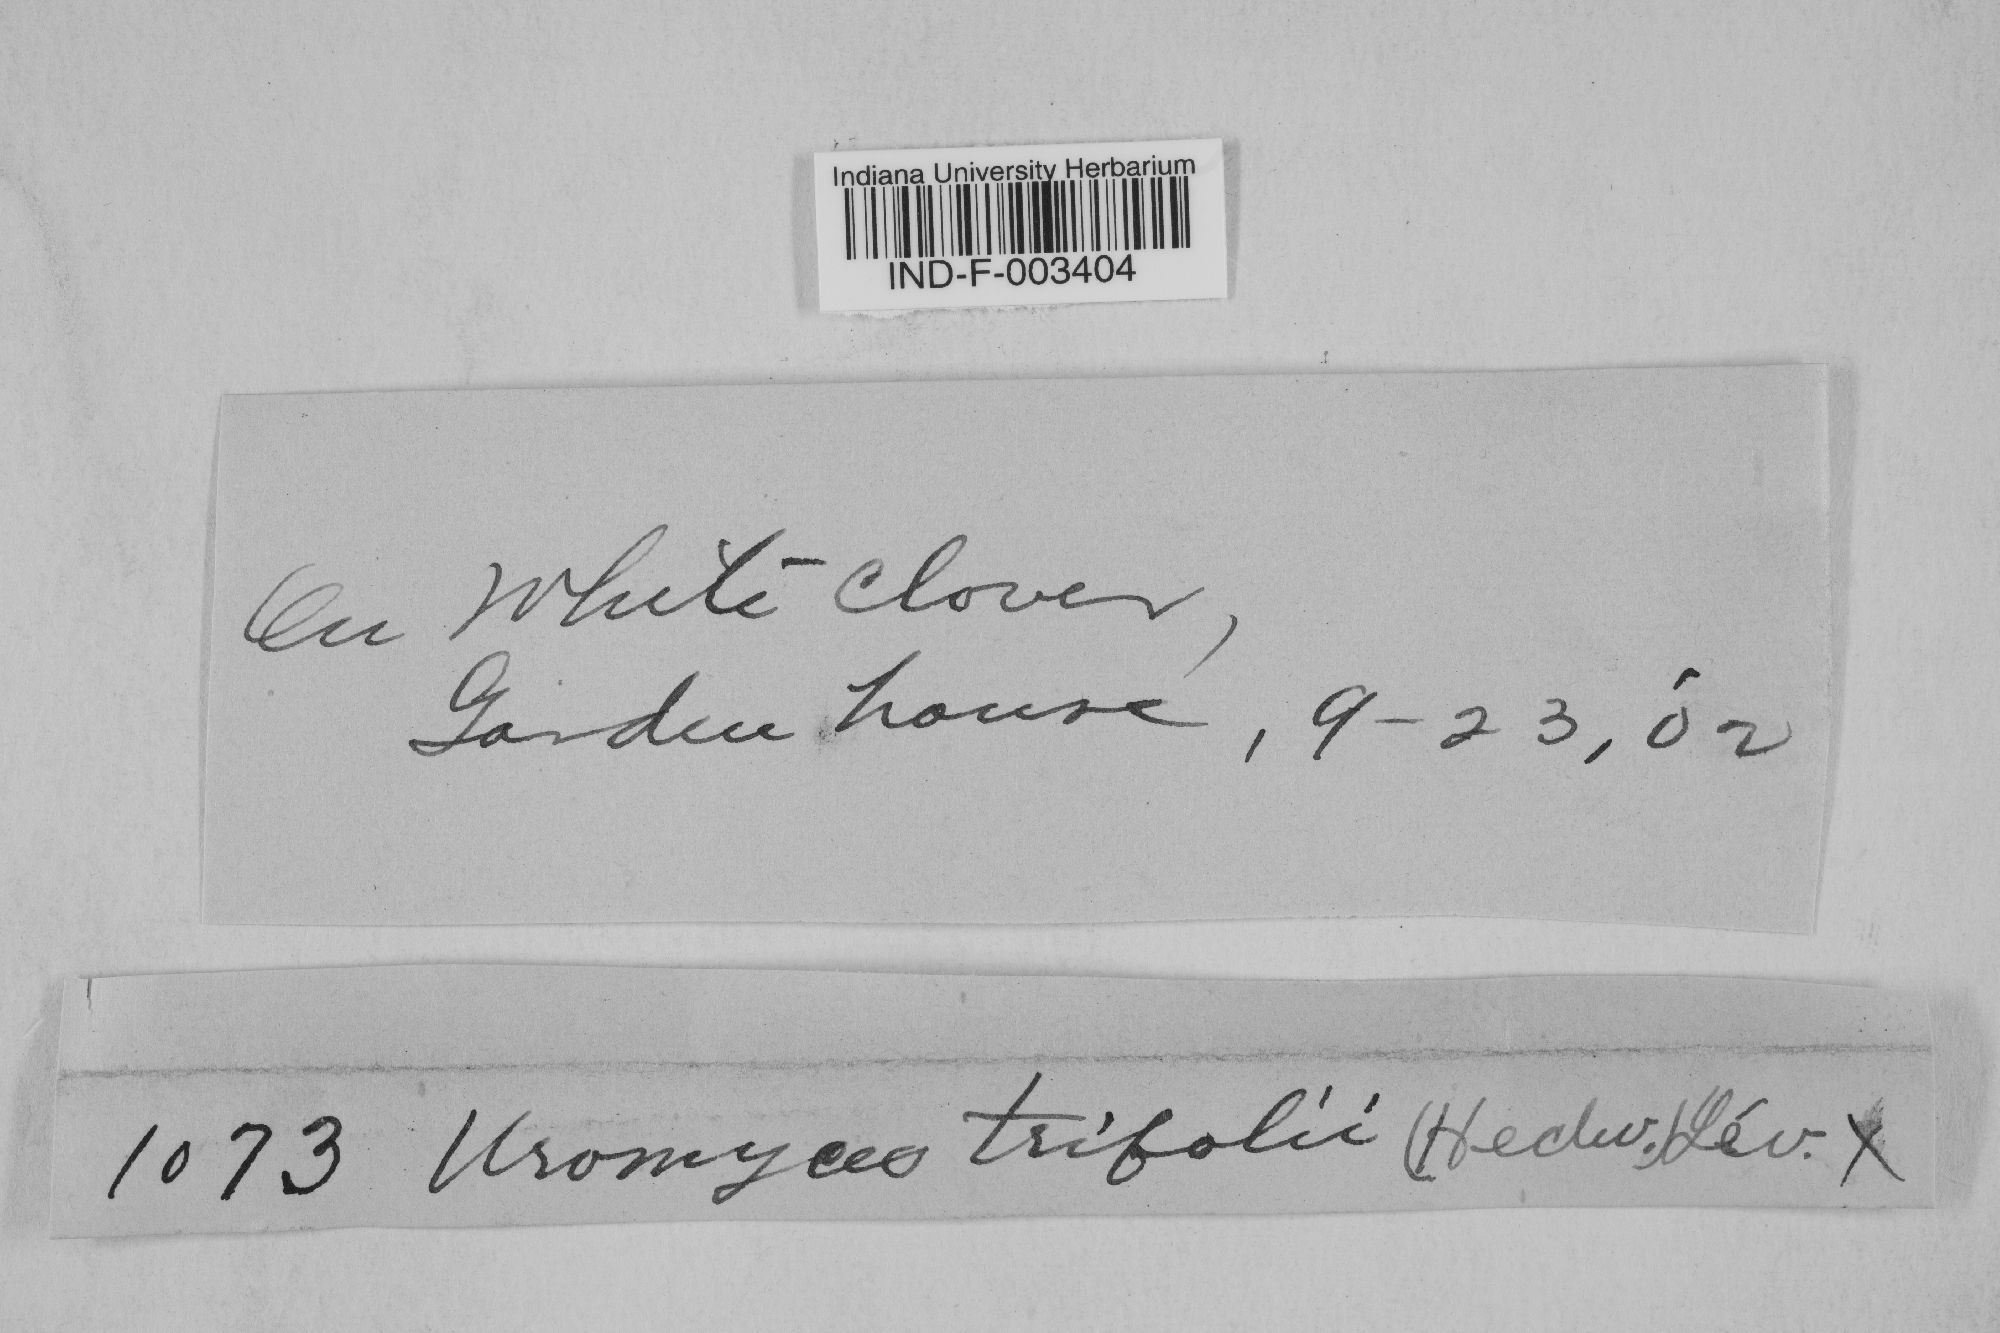 Indiana University Herbarium
IND-F-003404
On White clover,
Garden house, 9-23, '02
1073 Uromyces trifolii (Hedw.) Lév. X